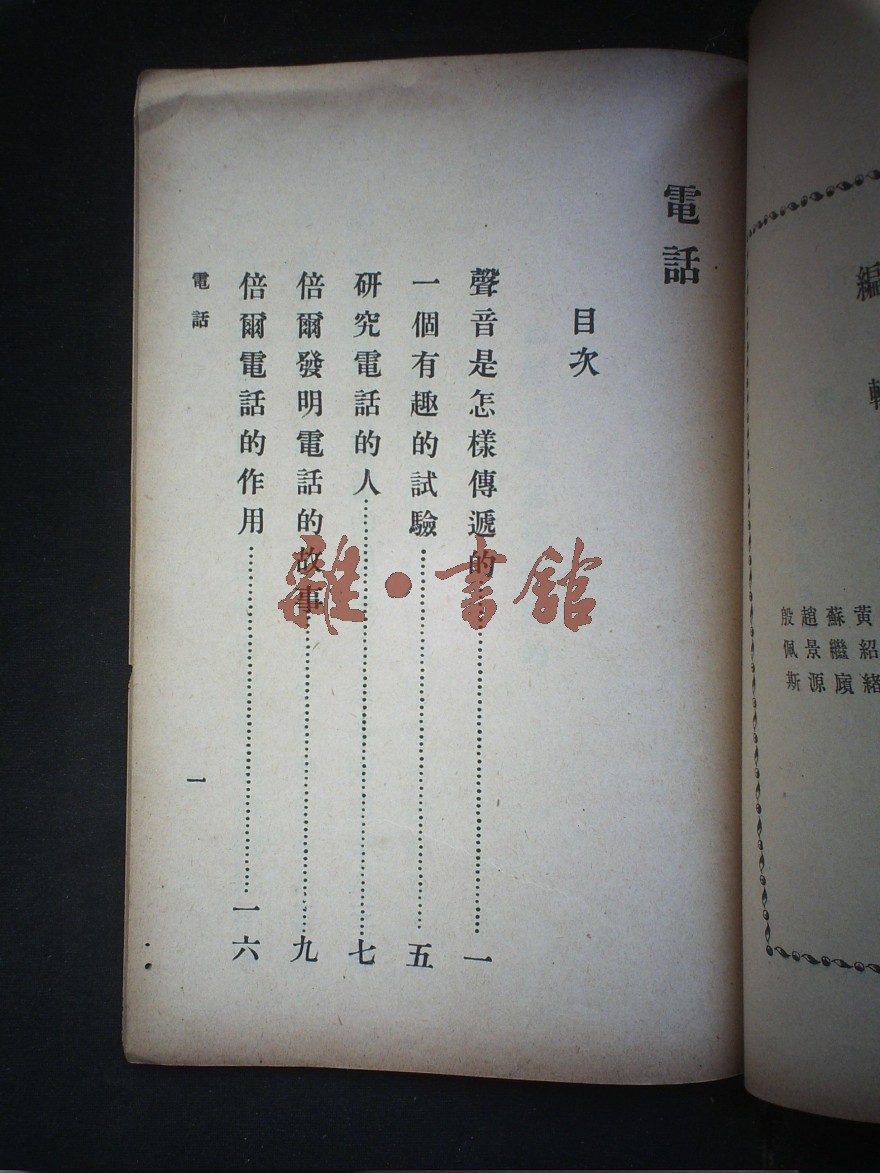 編
輯
黃紹緒
蘇繼廎
趙景源
殷佩斯
電話
目次
聲音是怎樣傳遞的……一
一個有趣的試驗……五
研究電話的人……七
倍爾發明電話的故事……九
倍爾電話的作用……一六
電話
一
雜·書館